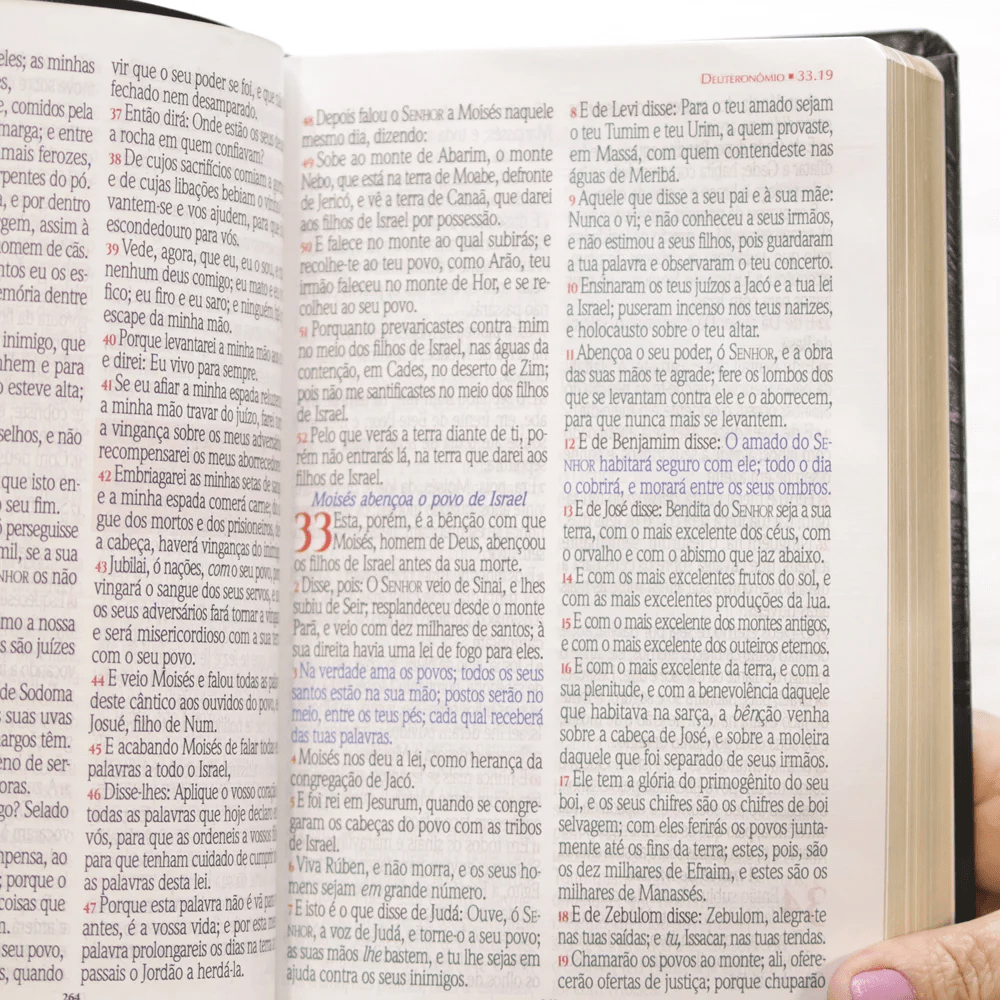 eles; as minhas
comidos pela
marga; e entre
mais ferozes,
do pó.
e por dentro
assim à
de cãs.
eu os
dentre
inimigo, que
e para
esteve alta;
e não
que isto en-
seu fim.
perseguisse
se a sua
os não
a nossa
são juízes
de Sodoma
suas uvas
têm.
de ser-
Selado
ao
porque o
coisas que
seu povo,
quando
vir que o seu poder se foi, e que
fechado nem desamparado.
37 Então dirá: Onde estão os seus
a rocha em quem confiavam?
38 De cujos sacrifícios comiam a
e de cujas libações bebiam o
vantem-se e vos ajudem, para
escondedouro para vós.
39 Vede, agora, que eu, eu o sou, e
nenhum deus comigo; eu mato e
fico; eu firo e eu saro; e ninguém
escape da minha mão.
40 Porque levantarei a minha mão
e direi: Eu vivo para sempre.
41 Se eu afiar a minha espada
a minha mão travar do juízo, farei
a vingança sobre os meus
recompensarei os meus
42 Embriagarei as minhas setas de
e a minha espada comerá carne;
gue dos mortos e dos prisioneiros,
a cabeça, haverá vinganças do
43 Jubilai, ó nações, com o seu povo,
vingará o sangue dos seus servos, e
os seus adversários fará tornar a
e será misericordioso com a sua
com o seu povo.
44 E veio Moisés e falou todas as
deste cântico aos ouvidos do povo,
Josué, filho de Num.
45 E acabando Moisés de falar
palavras a todo o Israel,
46 Disse-lhes: Aplique o vosso
todas as palavras que hoje
vós, para que as ordeneis a vossos
para que tenham cuidado de
as palavras desta lei.
47 Porque esta palavra não é vã
antes, é a vossa vida; e por esta
palavra prolongareis os dias na terra
passais o Jordão a herdá-la.
264
DEUTERONÔMIO ▪ 33.19
48 Depois falou o SENHOR a Moisés naquele
mesmo dia, dizendo:
49 Sobe ao monte de Abarim, o monte
Nebo, que está na terra de Moabe, defronte
de Jericó, e vê a terra de Canaã, que darei
aos filhos de Israel por possessão.
50 E falece no monte ao qual subirás; e
recolhe-te ao teu povo, como Arão, teu
irmão faleceu no monte de Hor, e se re-
colheu ao seu povo.
51 Porquanto prevaricastes contra mim
no meio dos filhos de Israel, nas águas da
contenção, em Cades, no deserto de Zim;
pois não me santificastes no meio dos filhos
de Israel.
52 Pelo que verás a terra diante de ti, po-
rém não entrarás lá, na terra que darei aos
filhos de Israel.
Moisés abençoa o povo de Israel
33 Esta, porém, é a bênção com que
Moisés, homem de Deus, abençoou
os filhos de Israel antes da sua morte.
2 Disse, pois: O SENHOR veio de Sinai, e lhes
subiu de Seir; resplandeceu desde o monte
Parã, e veio com dez milhares de santos; à
sua direita havia uma lei de fogo para eles.
3 Na verdade ama os povos; todos os seus
santos estão na sua mão; postos serão no
meio, entre os teus pés; cada qual receberá
das tuas palavras.
4 Moisés nos deu a lei, como herança da
congregação de Jacó.
5 E foi rei em Jesurum, quando se congre-
garam os cabeças do povo com as tribos
de Israel.
6 Viva Rúben, e não morra, e os seus ho-
mens sejam em grande número.
7 E isto é o que disse de Judá: Ouve, ó SE-
NHOR, a voz de Judá, e torne-o a seu povo;
as suas mãos lhe bastem, e tu lhe sejas em
ajuda contra os seus inimigos.
8 E de Levi disse: Para o teu amado sejam
o teu Tumim e teu Urim, a quem provaste,
em Massá, com quem contendeste nas
águas de Meribá.
9 Aquele que disse a seu pai e à sua mãe:
Nunca o vi; e não conheceu a seus irmãos,
e não estimou a seus filhos, pois guardaram
a tua palavra e observaram o teu concerto.
10 Ensinaram os teus juízos a Jacó e a tua lei
a Israel; puseram incenso nos teus narizes,
e holocausto sobre o teu altar.
11 Abençoa o seu poder, ó SENHOR, e a obra
das suas mãos te agrade; fere os lombos dos
que se levantam contra ele e o aborrecem,
para que nunca mais se levantem.
12 E de Benjamim disse: O amado do SE-
NHOR habitará seguro com ele; todo o dia
o cobrirá, e morará entre os seus ombros.
13 E de José disse: Bendita do SENHOR seja a sua
terra, com o mais excelente dos céus, com
o orvalho e com o abismo que jaz abaixo.
14 E com os mais excelentes frutos do sol, e
com as mais excelentes produções da lua.
15 E com o mais excelente dos montes antigos,
e com o mais excelente dos outeiros eternos.
16 E com o mais excelente da terra, e com a
sua plenitude, e com a benevolência daquele
que habitava na sarça, a bênção venha
sobre a cabeça de José, e sobre a moleira
daquele que foi separado de seus irmãos.
17 Ele tem a glória do primogênito do seu
boi, e os seus chifres são os chifres de boi
selvagem; com eles ferirás os povos junta-
mente até os fins da terra; estes, pois, são
os dez milhares de Efraim, e estes são os
milhares de Manassés.
18 E de Zebulom disse: Zebulom, alegra-te
nas tuas saídas; e tu, Issacar, nas tuas tendas.
19 Chamarão os povos ao monte; ali, ofere-
cerão ofertas de justiça; porque chuparão